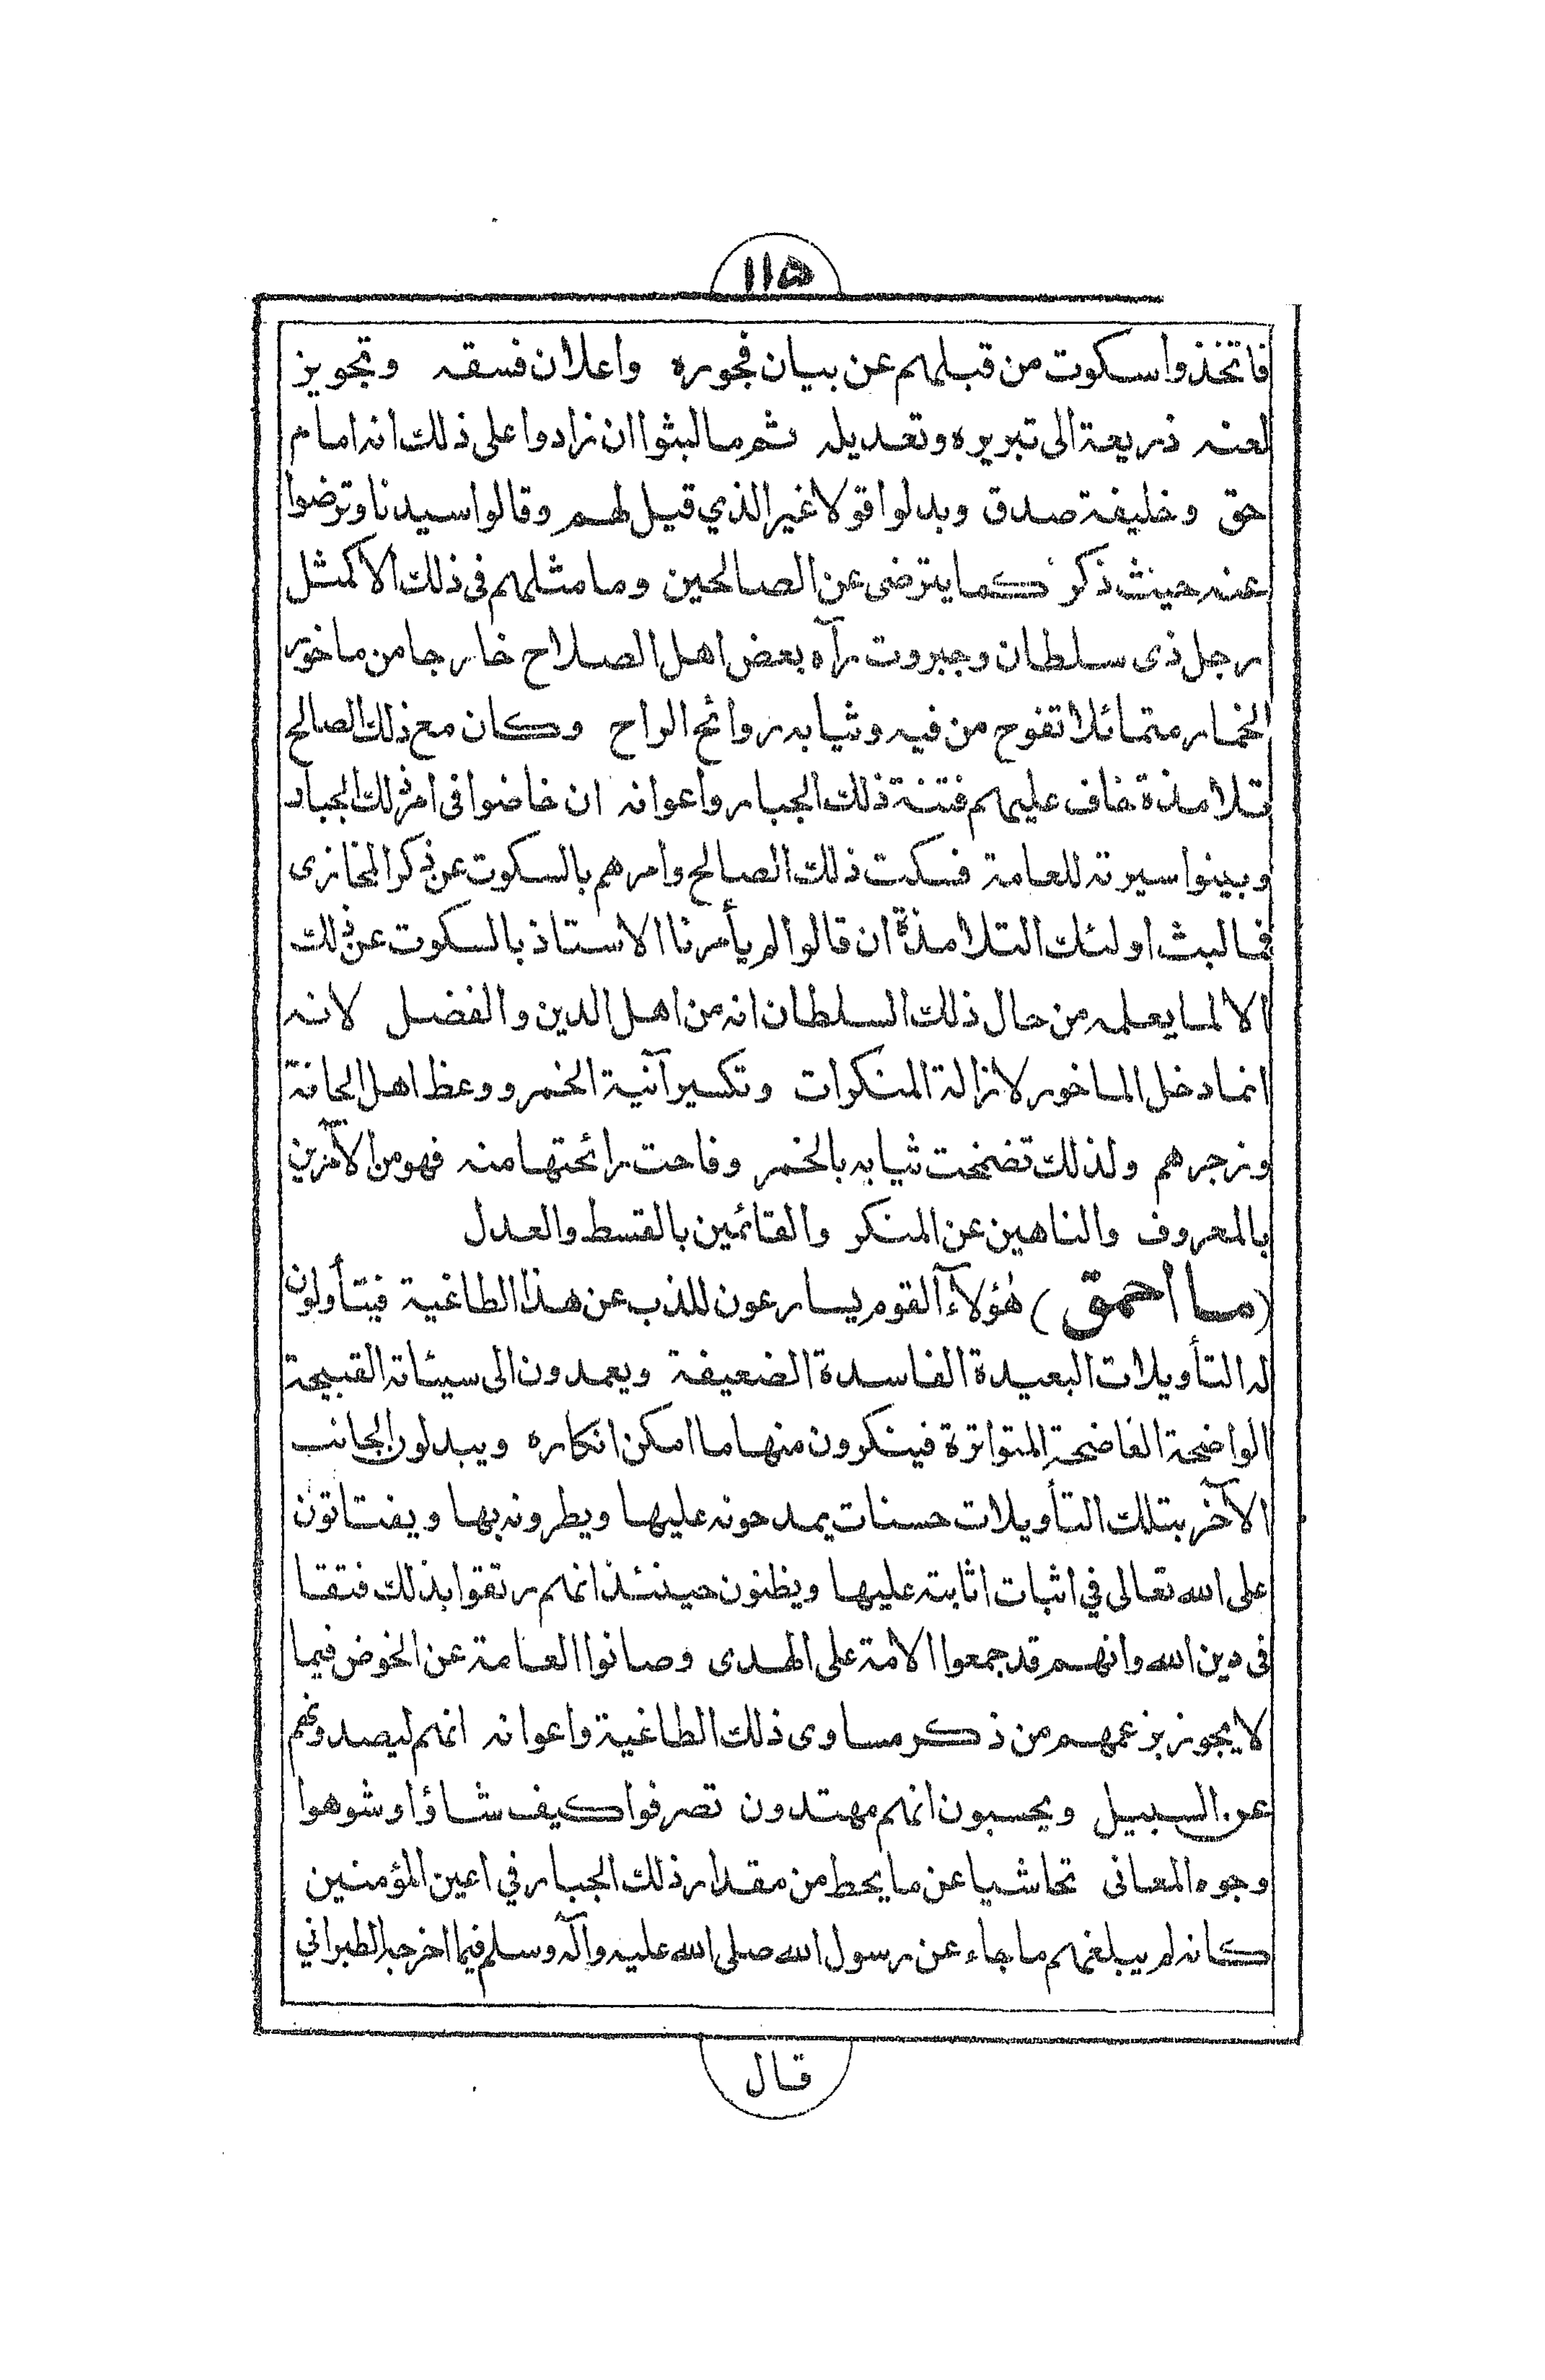 ١١٥
فاتخذوا سكوت من قبلهم عن بيان فجوره واعلان فسقه وتجويز
لعنه ذريعة الى تبريره وتعديله ثم ما لبثوا ان زادوا على ذلك انه امام
حق وخليفة صدق وبدلوا قولا غير الذي قيل لهم وقالوا سيدنا وترضوا
عنه حيث ذكر كما يترضى عن الصالحين وما مثلهم فى ذلك الا كمثل
رجل ذى سلطان وجبروت رآه بعض اهل الصلاح خارجا من ماخور
الخمار متمائلا تفوح من فيه وثيابه روائح الراح وكان مع ذلك الصالح
تلامذة خاف عليهم فتنة ذلك الجبار واعوانه ان خاضوا فى امر ذلك الجبار
وبينوا سيرته للعامة فسكت ذلك الصالح وامرهم بالسكوت عن ذكر المخازى
فما لبث اولئك التلامذة ان قالوا لم يأمرنا الاستاذ بالسكوت عن ذلك
الا لما يعلمه من حال ذلك السلطان انه من اهل الدين والفضل لانه
انما دخل الماخور لازالة المنكرات وتكسير آنية الخمر ووعظ اهل الحانة
وزجرهم ولذلك تضمخت ثيابه بالخمر وفاحت رائحتها منه فهو من الآمرين
بالمعروف والناهين عن المنكر والقائمين بالقسط والعدل
(ما احمق) هؤلاء القوم يسارعون للذب عن هذا الطاغية فيتأولون
له التأويلات البعيدة الفاسدة الضعيفة ويعمدون الى سيئاته القبيحة
الواضحة الفاضحة المتواترة فينكرون منها ما امكن انكاره ويبدلون الجانب
الآخر بتلك التأويلات حسنات يمدحونه عليها ويطرونه بها ويفتاتون
على الله تعالى في اثبات اثابته عليها ويظنون حينئذ انهم رتقوا بذلك فتقا
فى دين الله وانهم قد جمعوا الامة على الهدى وصانوا العامة عن الخوض فيما
لا يجوز بزعمهم من ذكر مساوى ذلك الطاغية واعوانه انهم ليصدونهم
عن السبيل ويحسبون انهم مهتدون تصرفوا كيف شاؤا وشوهوا
وجوه المعانى تحاشيا عن ما يحط من مقدار ذلك الجبار في اعين المؤمنين
كانه لم يبلغهم ما جاء عن رسول الله صلى الله عليه وآله وسلم فيما اخرجه الطبراني
قال